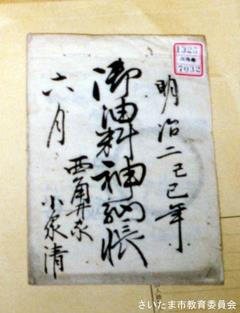 明治二己巳年
御油料補納帳
六月
西角井家
小泉清
1325
7032
さいたま市教育委員会